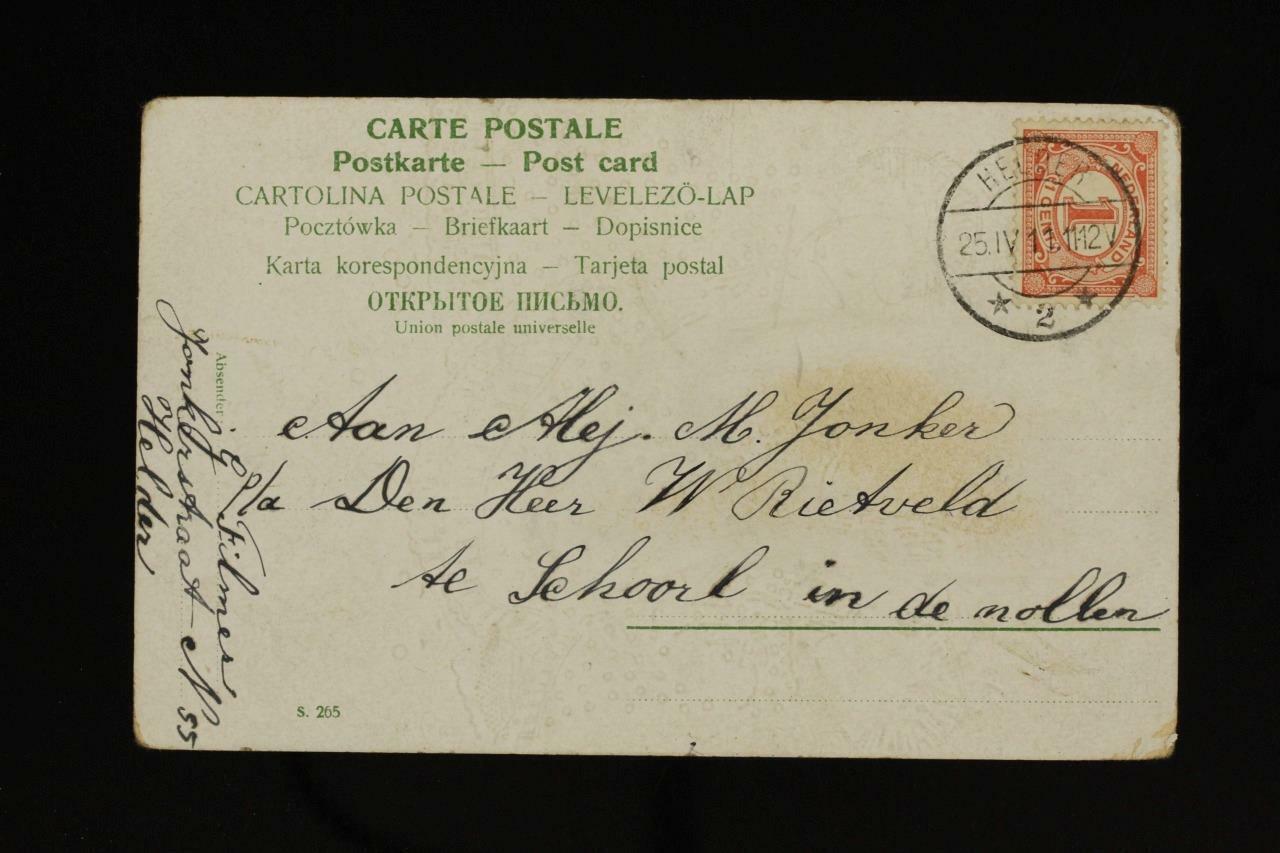 CARTE POSTALE
Postkarte — Post card
CARTOLINA POSTALE — LEVELEZÖ-LAP
Pocztówka — Briefkaart — Dopisnice
Karta korespondencyjna — Tarjeta postal
ОТКРЫТОЕ ПИСЬМО.
Union postale universelle
HELDER
25.IV.11.11-12V
2
NEDERLAND
1
CENT
Aan Mej. M. Jonker
p/a Den Heer W Rietveld
te Schoorl in de nollen
Absender:
G. Filmer
Jonkerstraat N 55
Helder
S. 265